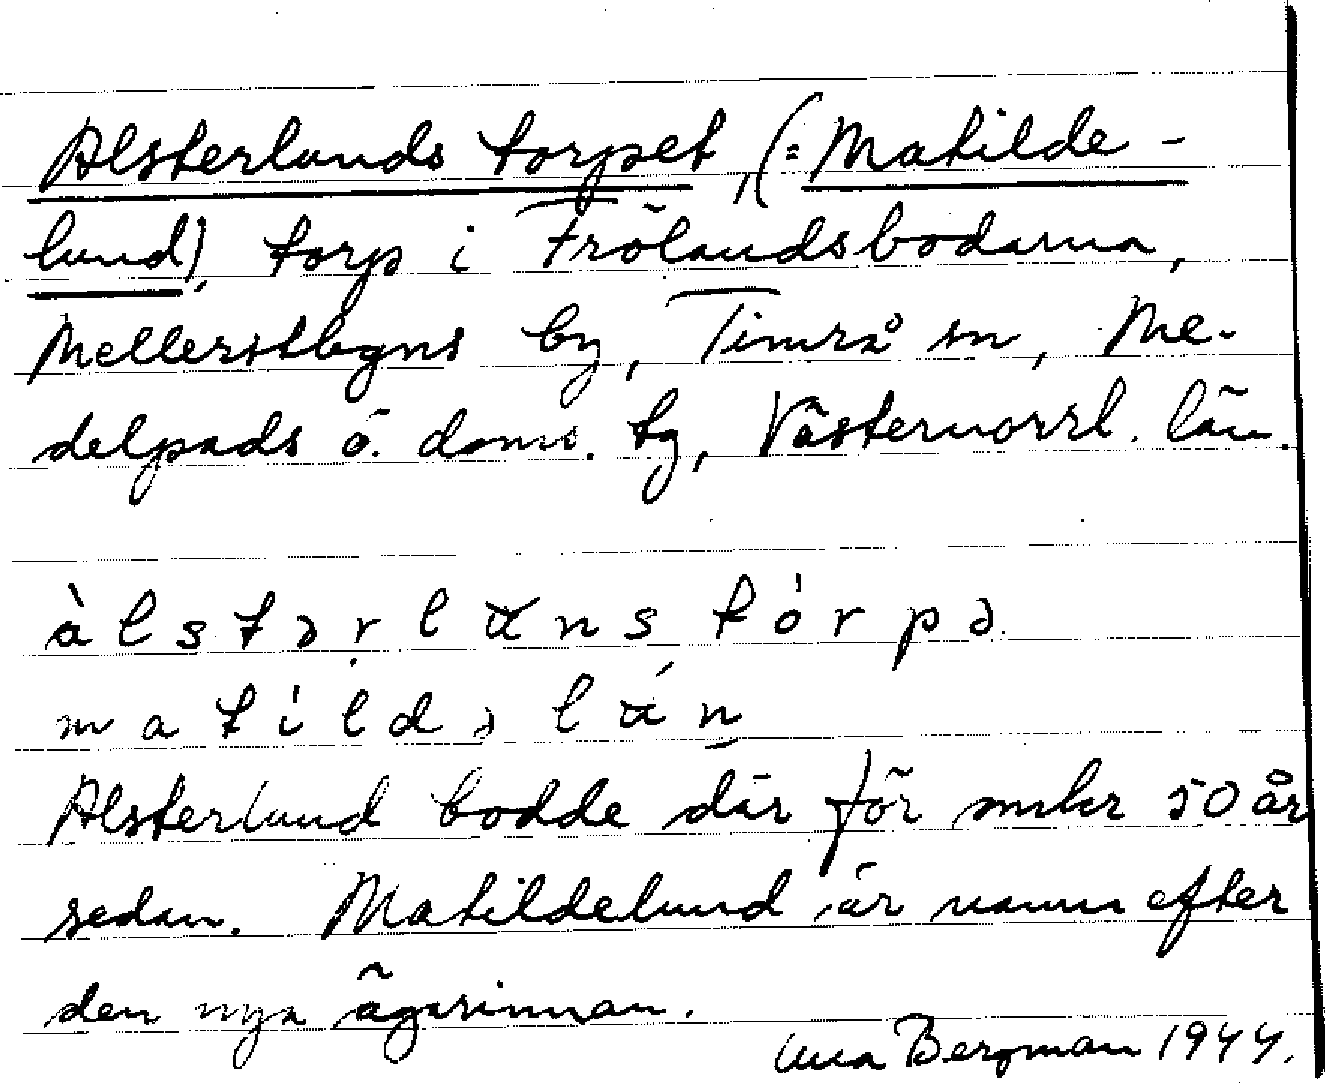 Alsterlunds torpet, (= Matilde-
lund), torp i Frölandsbodarna,
Mellerstbyns by, Timrå sn, Me-
delpads ö. doms. tg, Västernorrl. län.
àlstərlɯns tór pə
matíldəlɯ́n
Alsterlund bodde där för omkr 50 år
sedan. Matildelund är namn efter
den nya ägarinnan.
Bergman 1944.